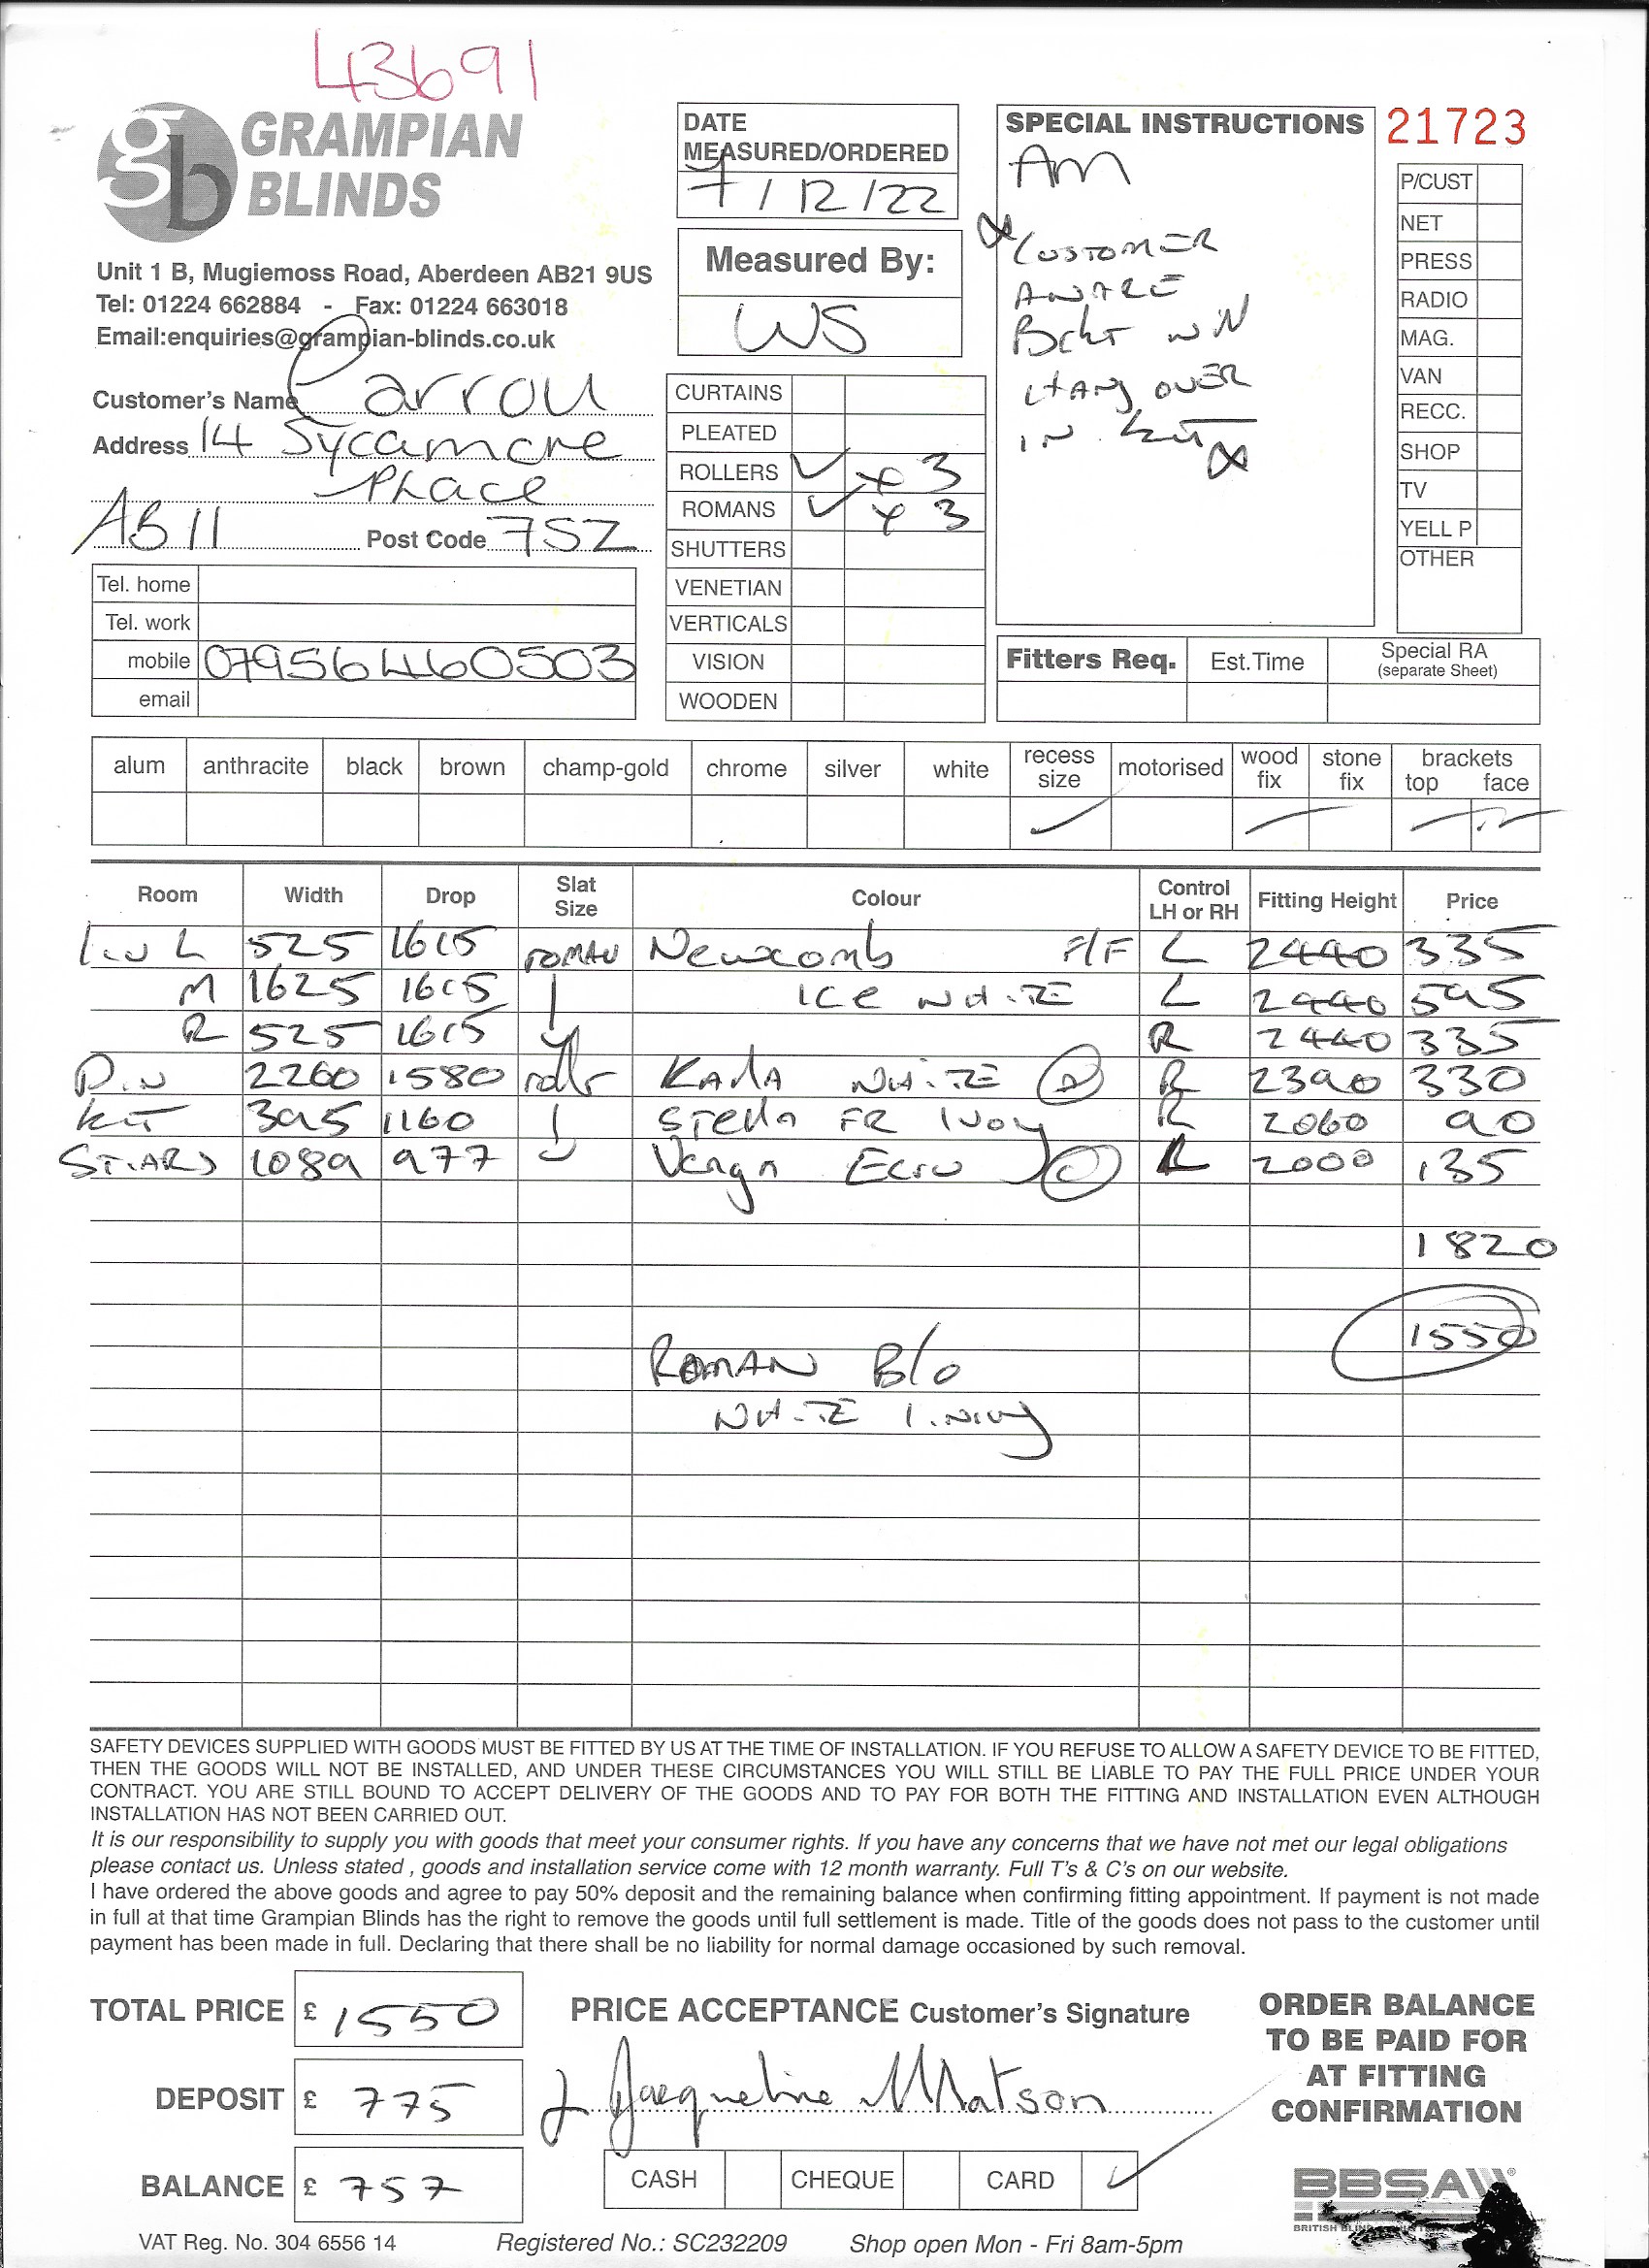 43691
GRAMPIAN
BLINDS
Unit 1 B, Mugiemoss Road, Aberdeen AB21 9US
Tel: 01224 662884 - Fax: 01224 663018
Email:enquiries@grampian-blinds.co.uk
Customer's Name Carrou
Address 14 Sycamore
Place
AB11 Post Code 7SZ
Tel. home
Tel. work
mobile 07956460503
email
DATE
MEASURED/ORDERED
7/12/22
Measured By:
WS
CURTAINS
PLEATED
ROLLERS ✓ x 3
ROMANS ✓ x 3
SHUTTERS
VENETIAN
VERTICALS
VISION
WOODEN
SPECIAL INSTRUCTIONS
AM
CUSTOMER
AWARE
Bckt will
HANG OVER
IN KIT
21723
P/CUST
NET
PRESS
RADIO
MAG.
VAN
RECC.
SHOP
TV
YELL P
OTHER
Fitters Req. Est.Time Special RA
(separate Sheet)
alum anthracite black brown champ-gold chrome silver white recess size ✓ motorised wood fix stone fix brackets top face
Room Width Drop Slat Size Colour Control LH or RH Fitting Height Price
Liv L 525 1615 ROMAN Newcomb F/F L 2440 335
M 1625 1615 ICE WHITE L 2440 595
R 525 1615 R 2440 335
Din 2260 1580 roller KARLA WHITE R 2390 330
KIT 395 1160 Stella FR Ivory R 2060 90
STAIRS 1089 977 Ecru 2000 135
1820
1550
ROMAN B/O
WHITE Lining
SAFETY DEVICES SUPPLIED WITH GOODS MUST BE FITTED BY US AT THE TIME OF INSTALLATION. IF YOU REFUSE TO ALLOW A SAFETY DEVICE TO BE FITTED,
THEN THE GOODS WILL NOT BE INSTALLED, AND UNDER THESE CIRCUMSTANCES YOU WILL STILL BE LIABLE TO PAY THE FULL PRICE UNDER YOUR
CONTRACT. YOU ARE STILL BOUND TO ACCEPT DELIVERY OF THE GOODS AND TO PAY FOR BOTH THE FITTING AND INSTALLATION EVEN ALTHOUGH
INSTALLATION HAS NOT BEEN CARRIED OUT.
It is our responsibility to supply you with goods that meet your consumer rights. If you have any concerns that we have not met our legal obligations
please contact us. Unless stated , goods and installation service come with 12 month warranty. Full T's & C's on our website.
I have ordered the above goods and agree to pay 50% deposit and the remaining balance when confirming fitting appointment. If payment is not made
in full at that time Grampian Blinds has the right to remove the goods until full settlement is made. Title of the goods does not pass to the customer until
payment has been made in full. Declaring that there shall be no liability for normal damage occasioned by such removal.
TOTAL PRICE £ 1550
DEPOSIT £ 775
BALANCE £ 757
PRICE ACCEPTANCE Customer's Signature
Jacqueline Watson
CASH CHEQUE CARD ✓
ORDER BALANCE
TO BE PAID FOR
AT FITTING
CONFIRMATION
BBSA
VAT Reg. No. 304 6556 14 Registered No.: SC232209 Shop open Mon - Fri 8am-5pm